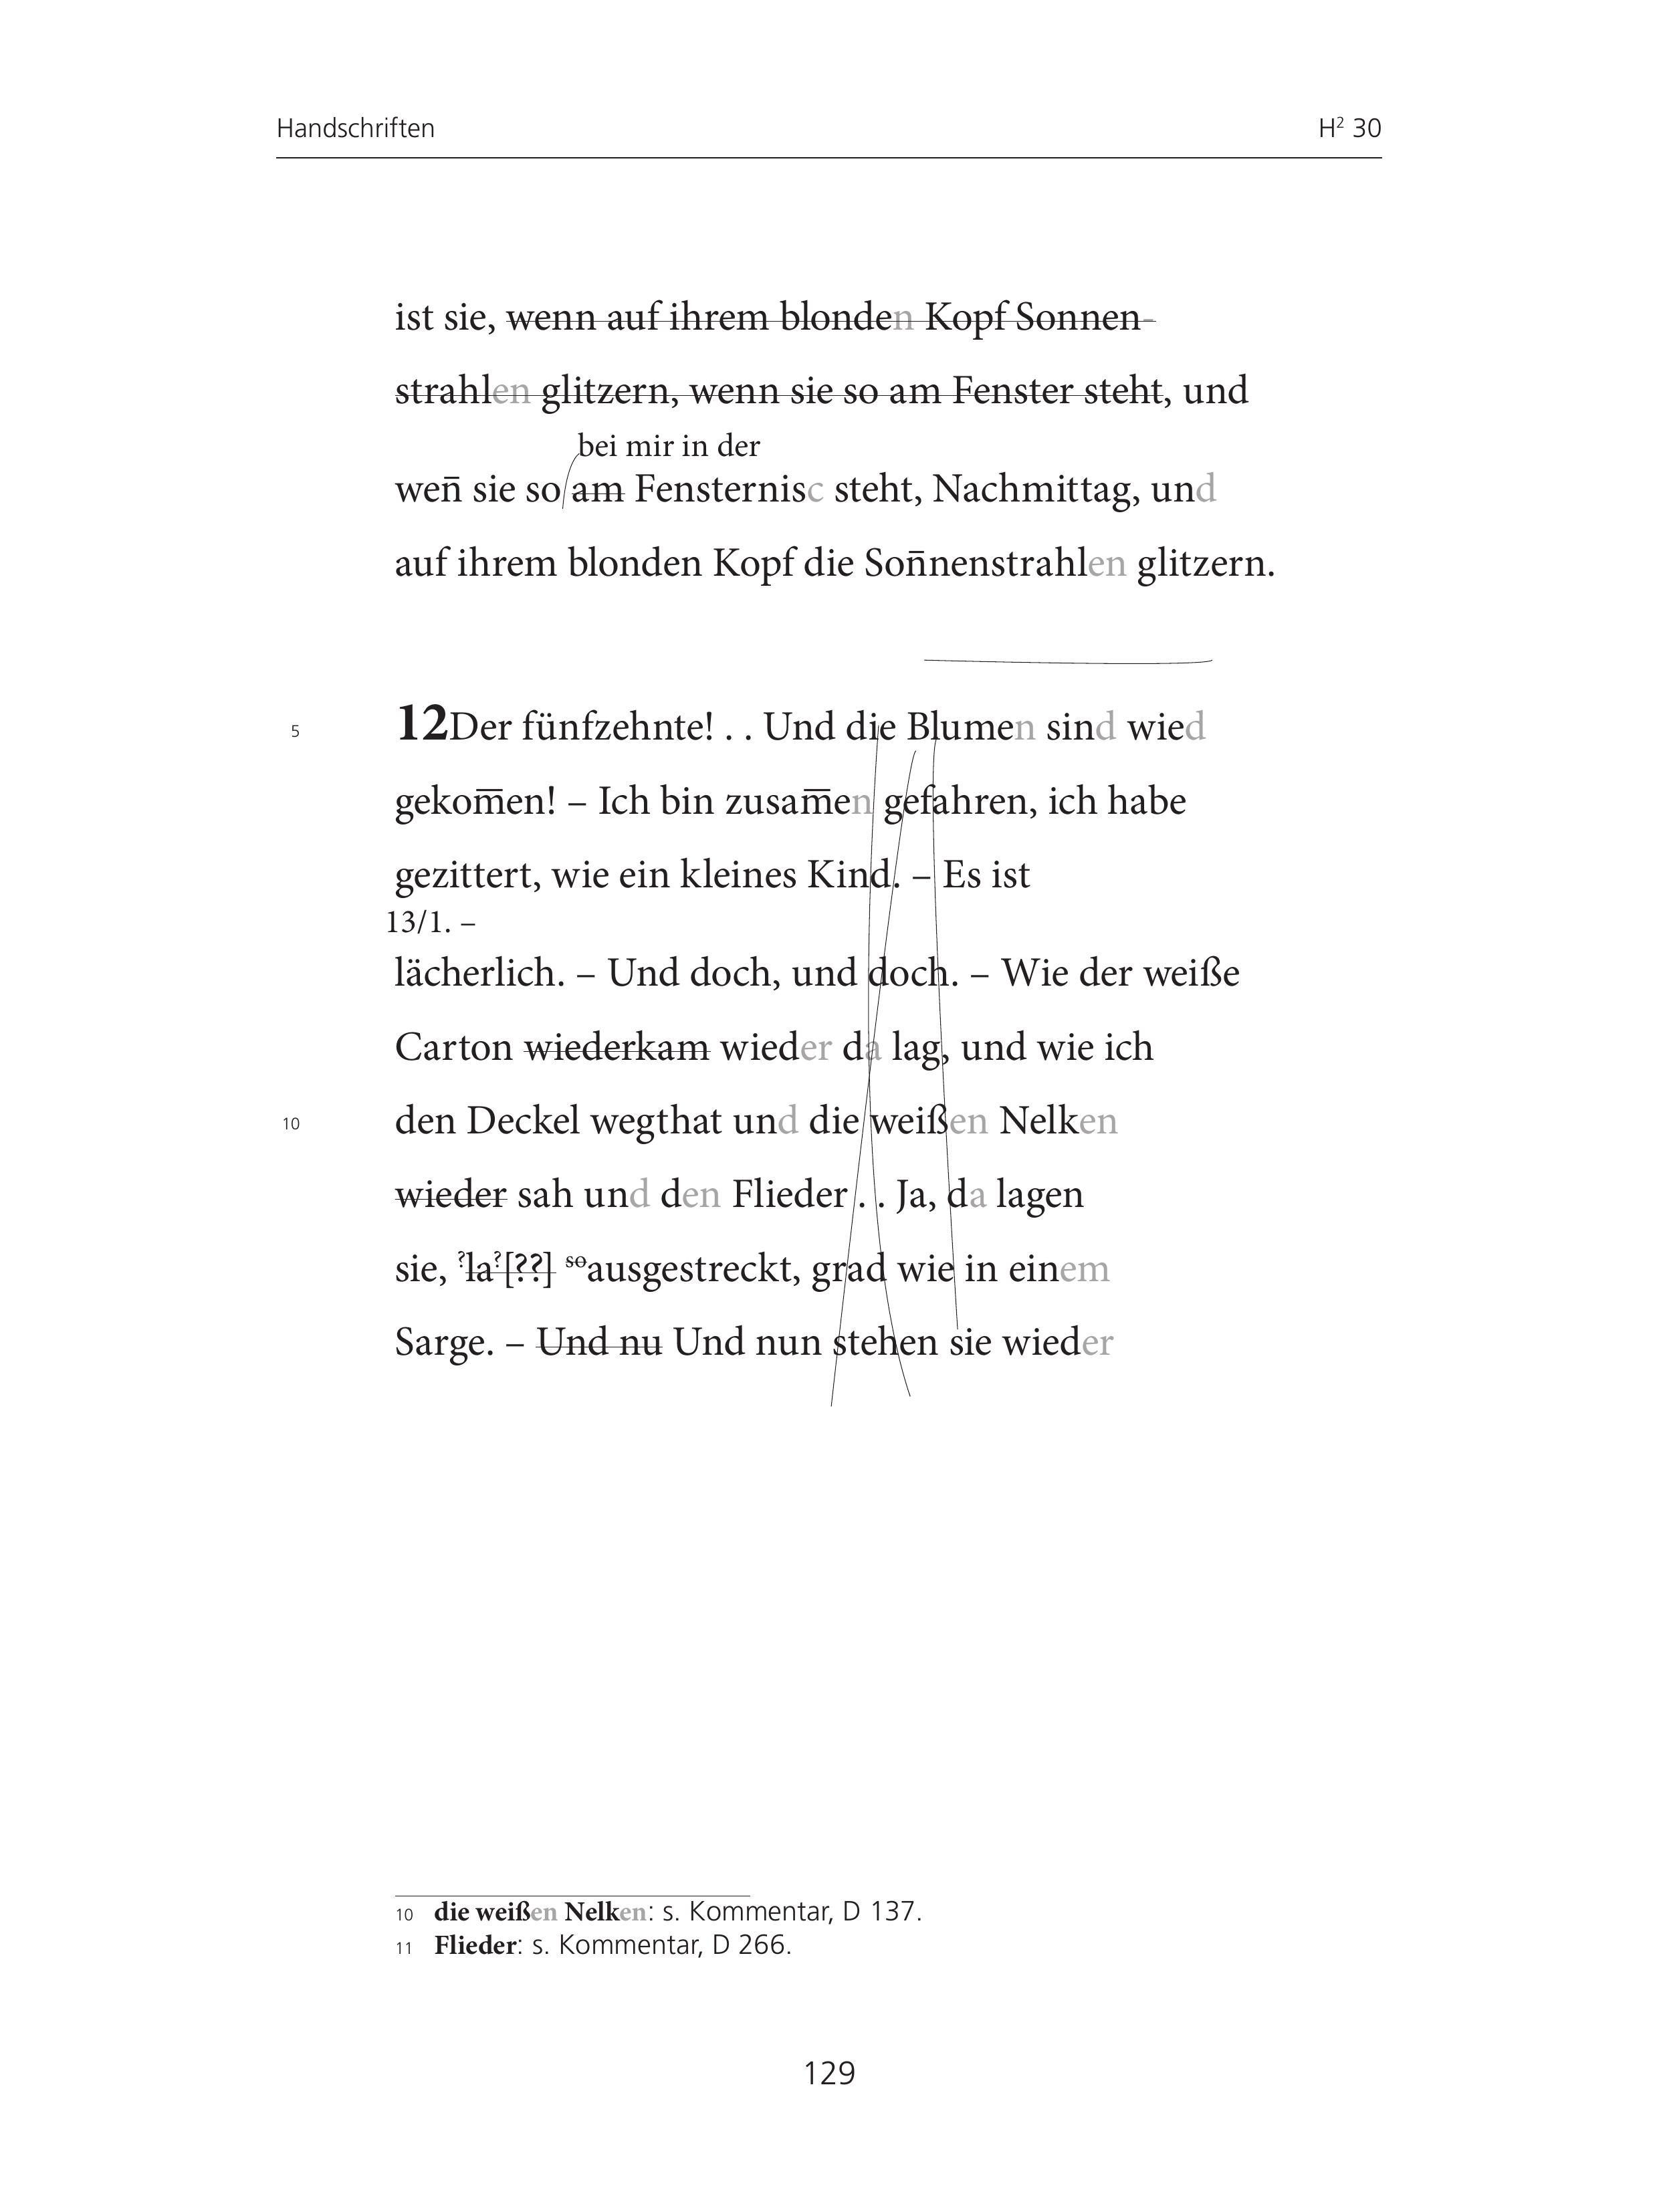 Handschriften H² 30
ist sie, wenn auf ihrem blonden Kopf Sonnen-
strahlen glitzern, wenn sie so am Fenster steht, und
bei mir in der
wen̅ sie so am Fensternisc steht, Nachmittag, und
auf ihrem blonden Kopf die Son̅nenstrahlen glitzern.
5 12Der fünfzehnte! . . Und die Blumen sind wied
gekom̅en! – Ich bin zusam̅en gefahren, ich habe
gezittert, wie ein kleines Kind. – Es ist
13/1. –
lächerlich. – Und doch, und doch. – Wie der weiße
Carton wiederkam wieder da lag, und wie ich
10 den Deckel wegthat und die weißen Nelken
wieder sah und den Flieder . . Ja, da lagen
sie, ?la?[??] soausgestreckt, grad wie in einem
Sarge. – Und nu Und nun stehen sie wieder
10 die weißen Nelken: s. Kommentar, D 137.
11 Flieder: s. Kommentar, D 266.
129